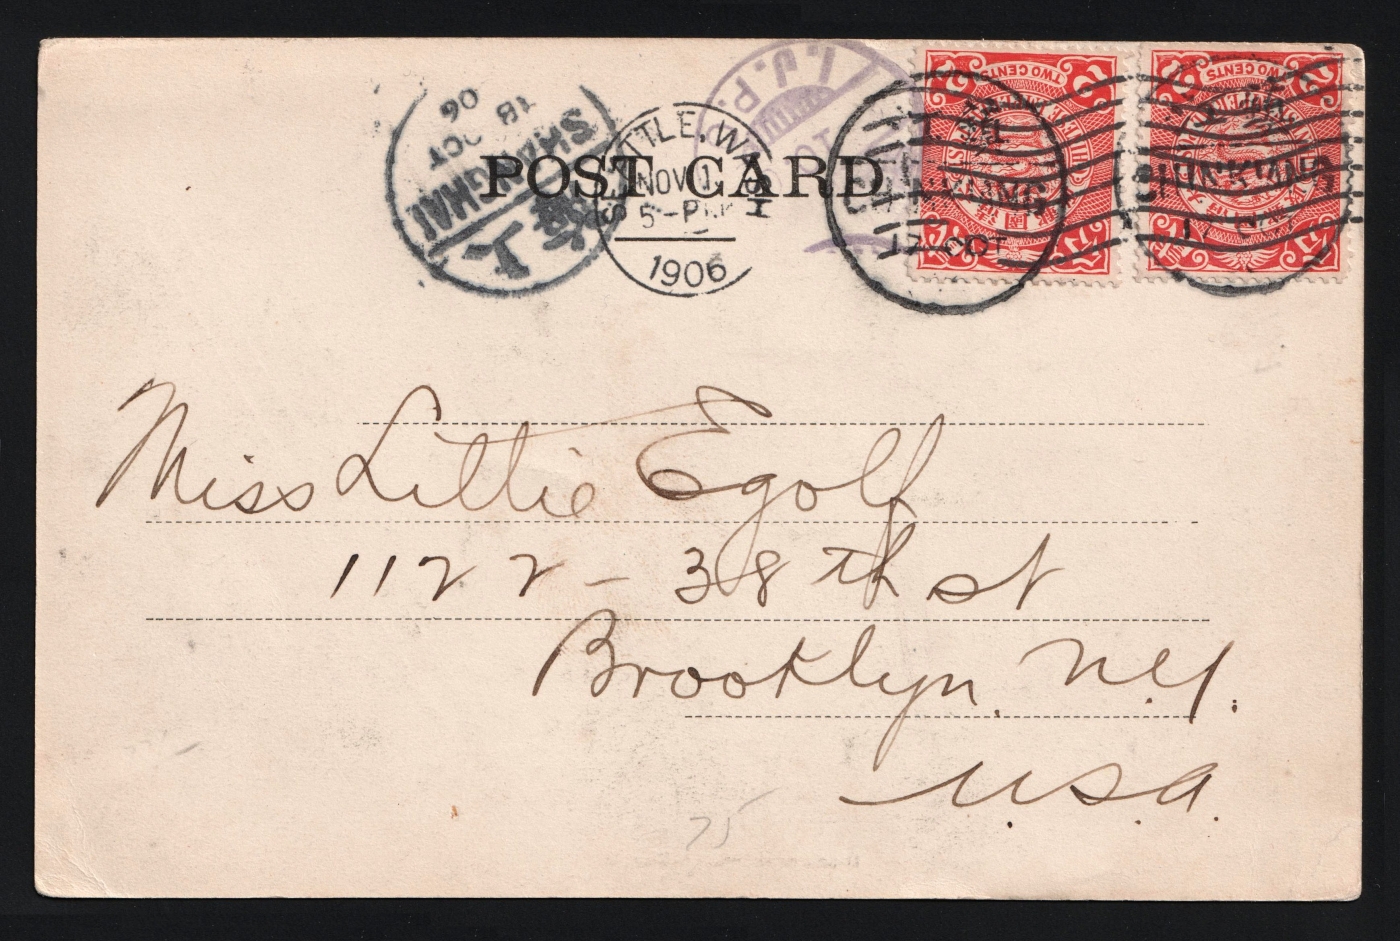 POST CARD
I.J.P.
SHANGHAI
18
OCT
06
上海
SEATTLE, WASH
NOV 1
5-PM
1906
TWO CENTS
TWO CENTS
17 OCT
Miss Littie Egolf
1122 - 38th St
Brooklyn. N.Y.
U.S.A.
75